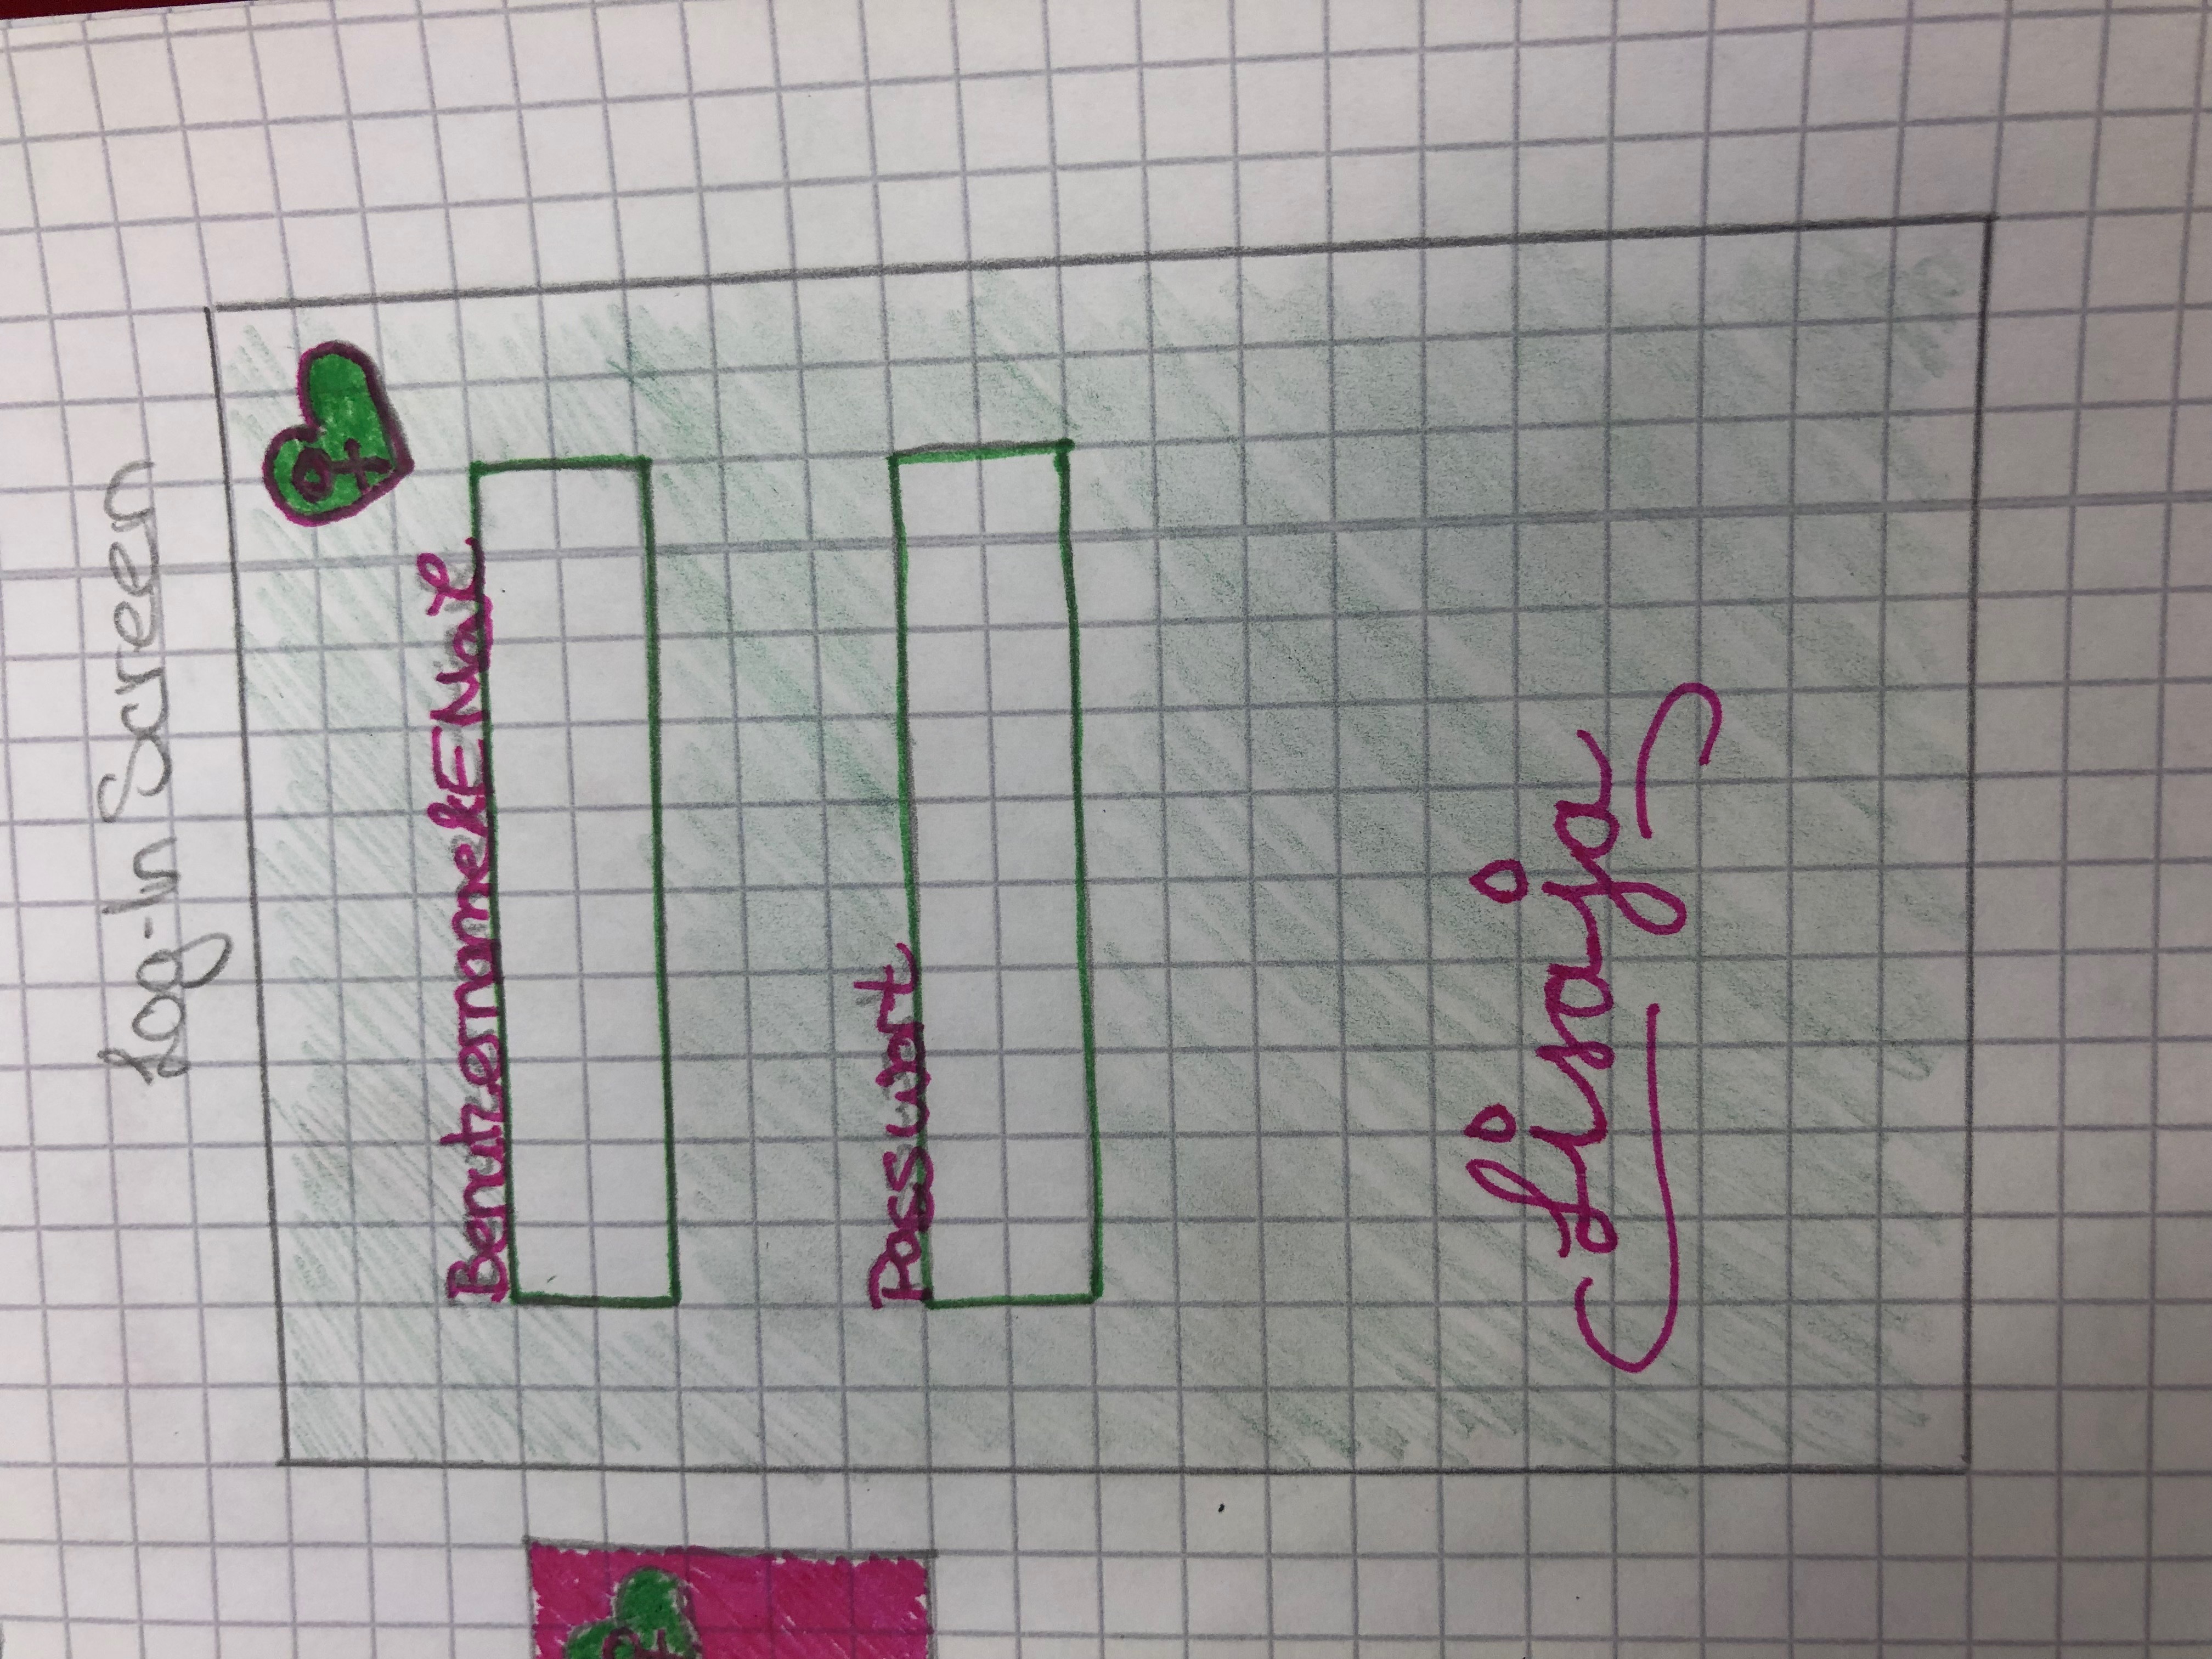 Log-In Screen
Benutzername&E Mail
Passwort
Lisaja